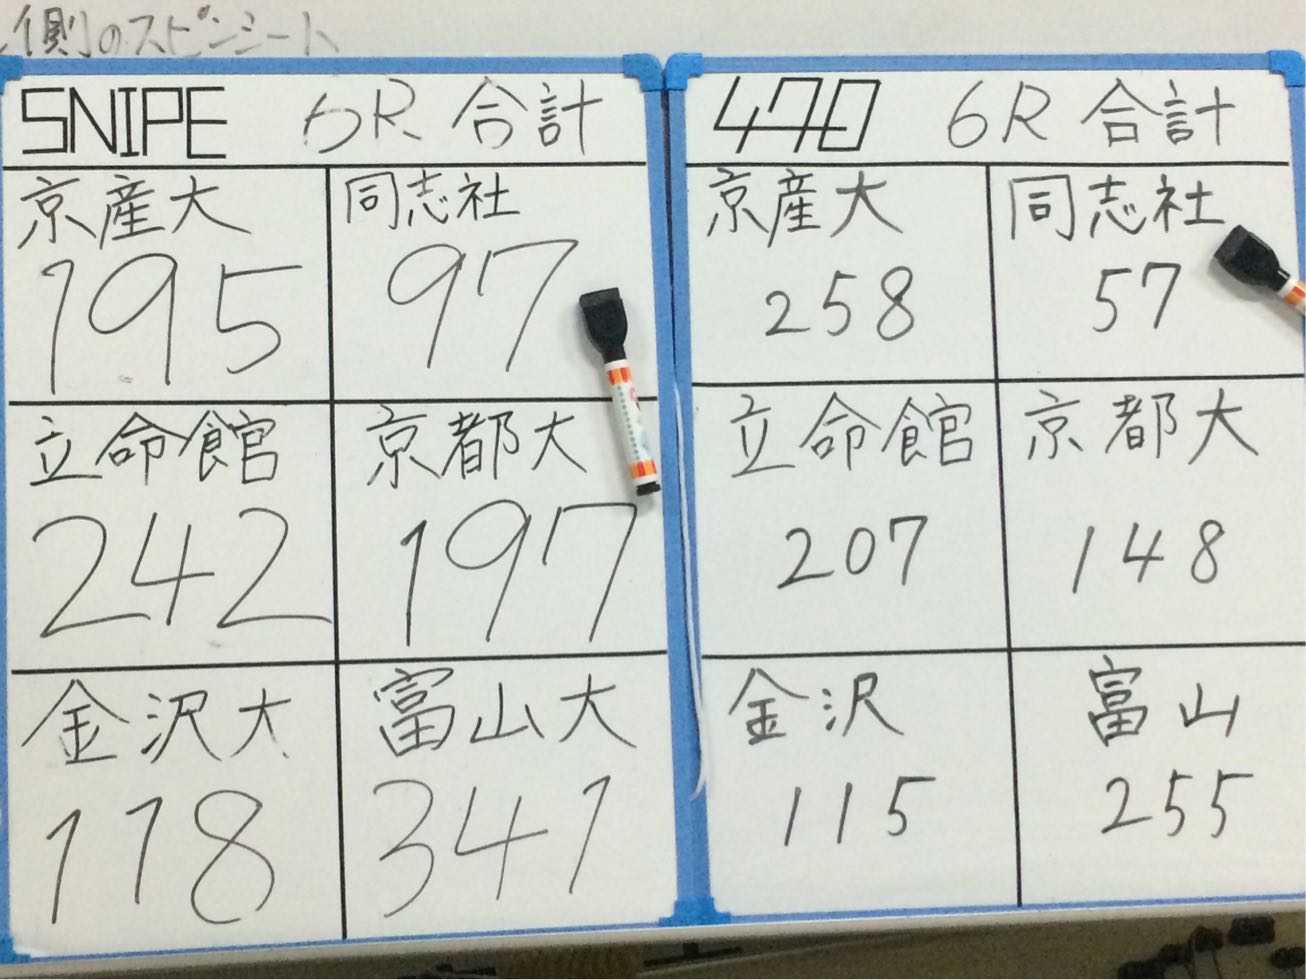 側のスピンシート
SNIPE 5R 合計
京産大 同志社
195 97
立命館 京都大
242 197
金沢大 富山大
118 341
470 6R 合計
京産大 同志社
258 57
立命館 京都大
207 148
金沢 富山
115 255